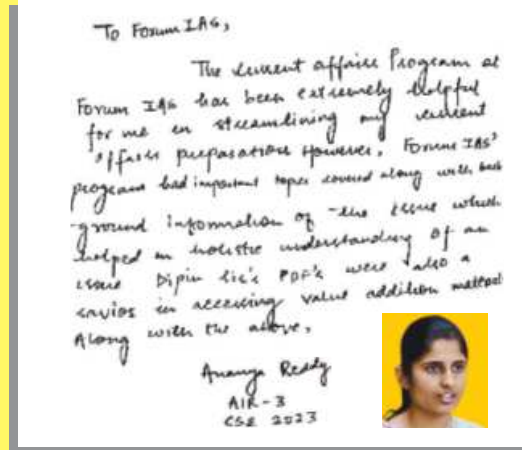 To Forum IAS,
The current affairs Program at
Forum IAS has been extremely helpful
for me in streamlining my current
affairs preparation However, Forum IAS'
program had important topics covered along with back
-ground information of the issue which
helped in holistic understanding of an
issue Bipin Sir's PDF's were also a
savior in accessing value addition material
Along with the above,
Ananya Reddy
AIR-3
CSE 2023